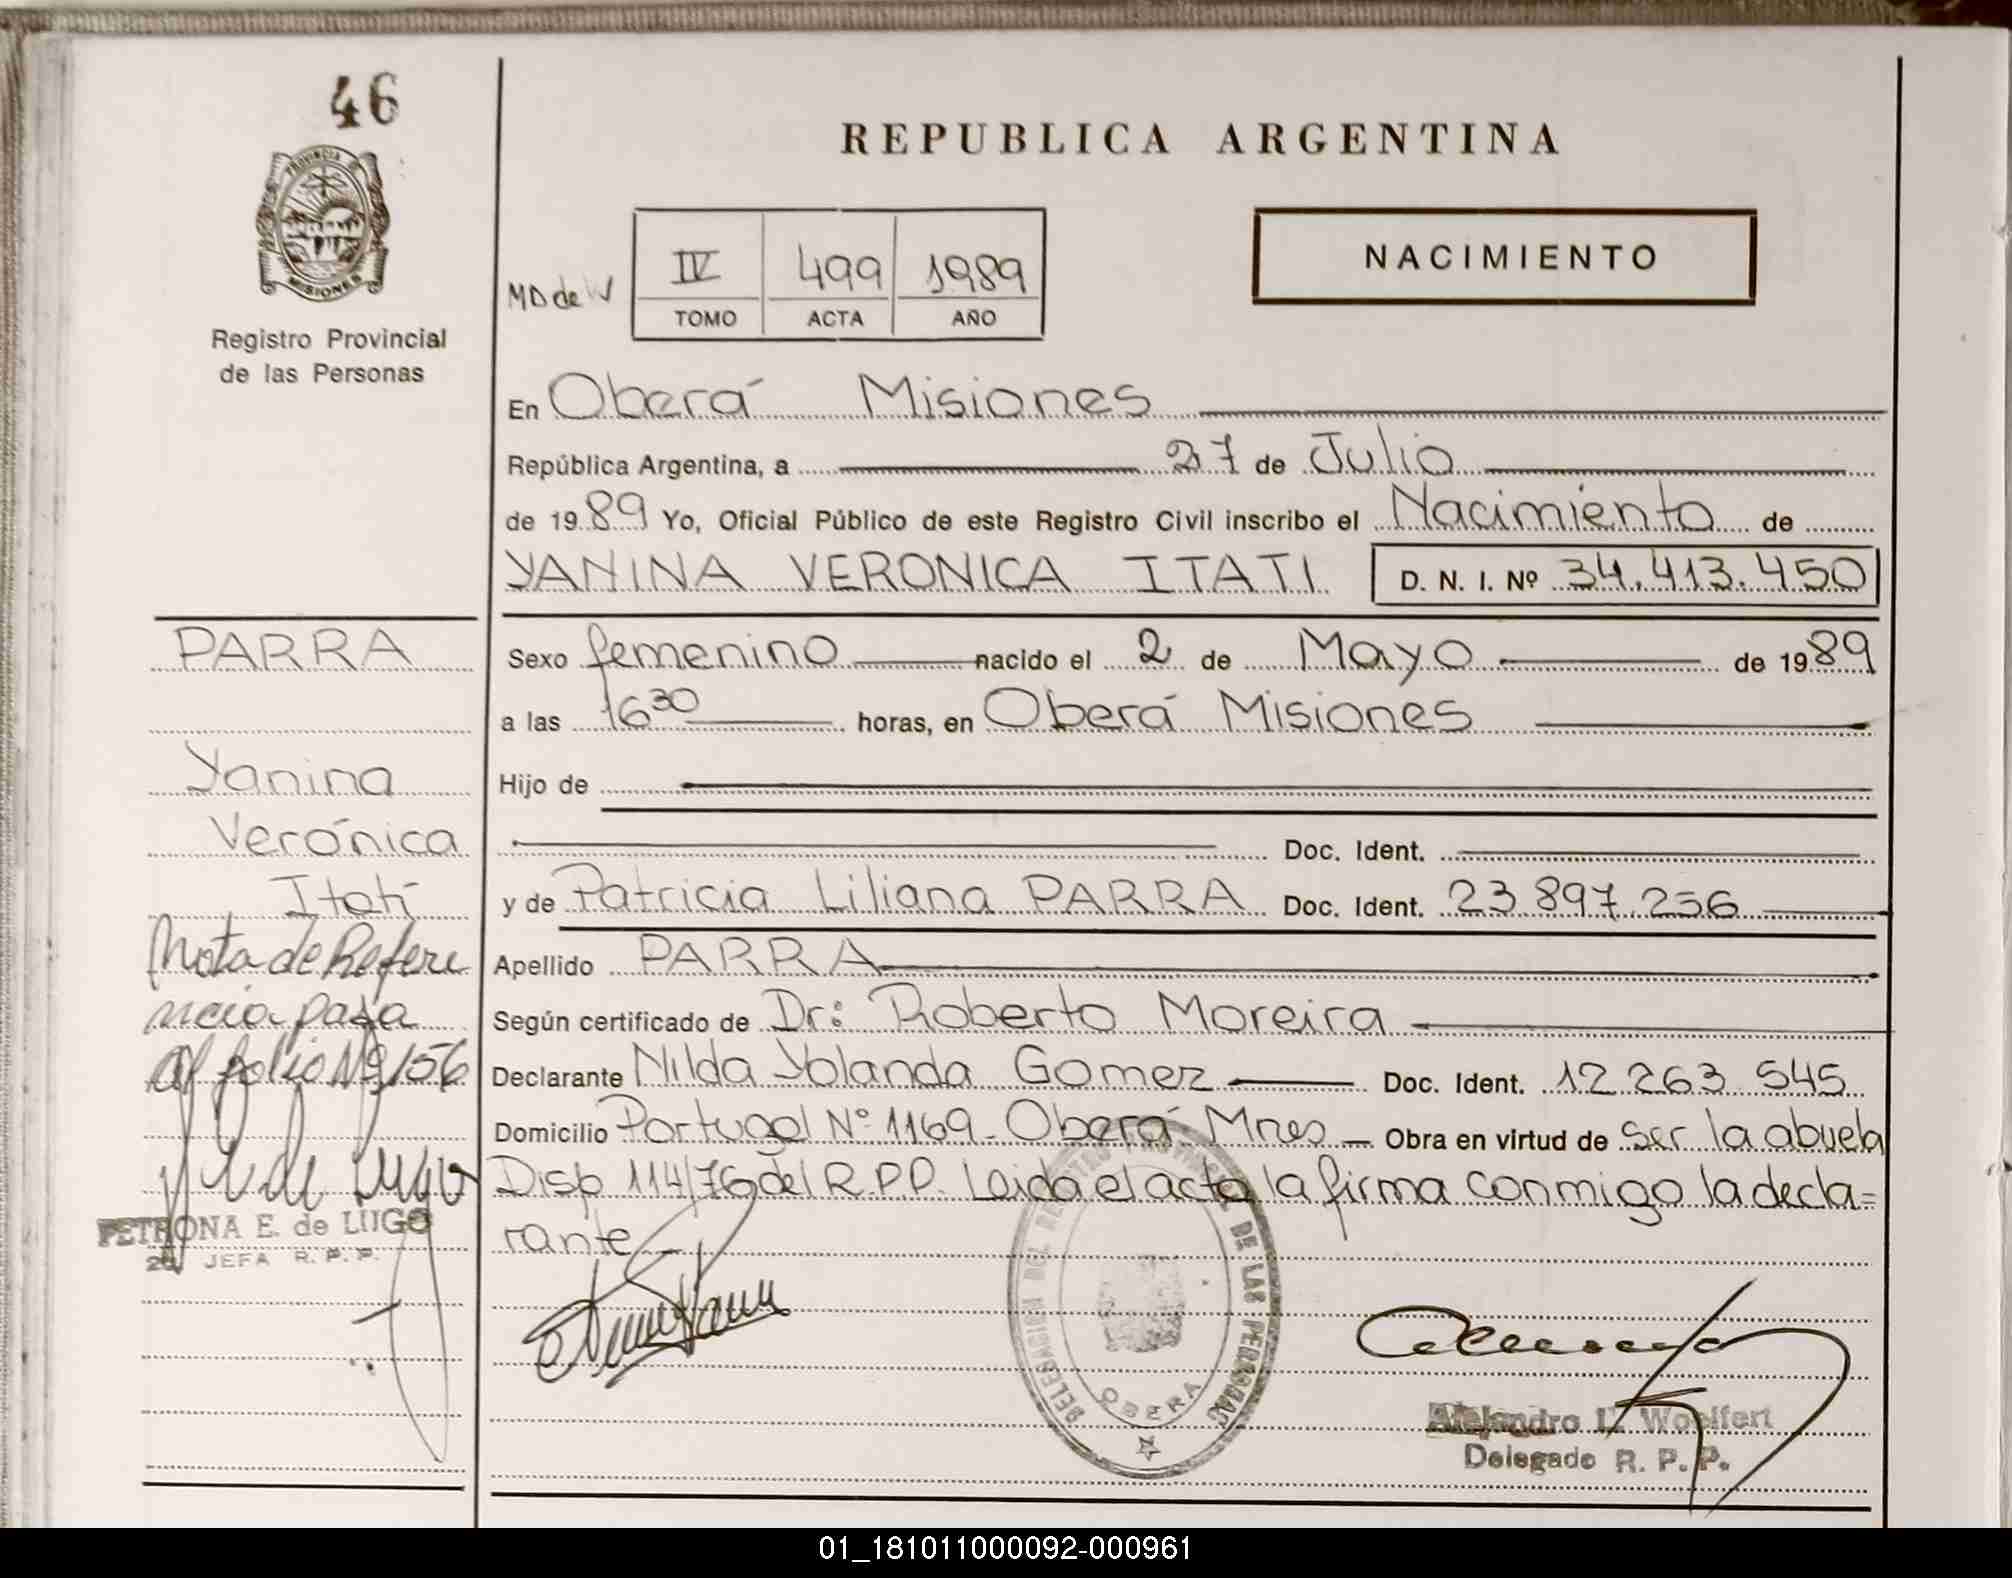 46
PROVINCIA
MISIONES
Registro Provincial
de las Personas
REPUBLICA ARGENTINA
NACIMIENTO
IV 499 1989
TOMO ACTA AÑO
En Oberá Misiones
República Argentina, a 27 de Julio
de 1989 Yo, Oficial Público de este Registro Civil inscribo el Nacimiento de
YANINA VERONICA ITATI D. N. I. Nº 34.413.450
PARRA
Yanina
Verónica
Itatí
Nota de Refere
ncia pasa
al folio Nº 156
PETRONA E. de LUGO
JEFA R. P. P.
Sexo femenino nacido el 2 de Mayo de 1989
a las 16 30 horas, en Oberá Misiones
Hijo de
Doc. Ident.
y de Patricia Liliana PARRA Doc. Ident. 23.897.256
Apellido PARRA
Según certificado de Dr: Roberto Moreira
Declarante Nilda Yolanda Gomez Doc. Ident. 12.263.545
Domicilio Portugal Nº 1169 - Oberá Mnes - Obra en virtud de Ser la abuela
Disp 114/76 del R.P.P. Leida el acta la firma conmigo la decla=
rante
DELEGACION DEL REGISTRO PROVINCIAL DE LAS PERSONAS
OBERA
Alejandro L. Woelfert
Delegado R. P. P.
01_181011000092-000961